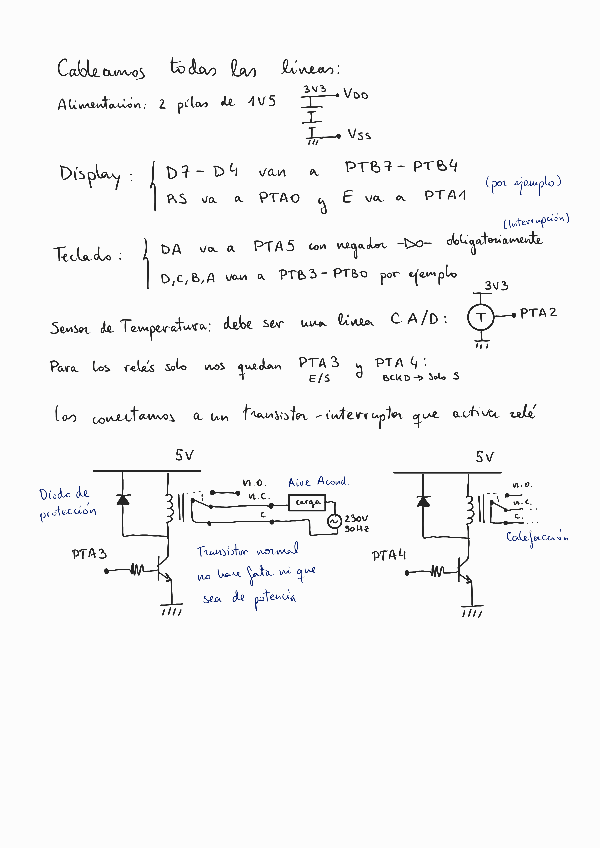 Cableamos todas las líneas:
Alimentación: 2 pilas de 1V5
3V3
VDD
VSS
Display: D7-D4 van a PTB7-PTB4
RS va a PTA0 y E va a PTA1
(por ejemplo)
(Interrupción)
Teclado: DA va a PTA5 con negador obligatoriamente
D,C,B,A van a PTB3-PTB0 por ejemplo
3V3
Sensor de Temperatura: debe ser una línea C.A/D:
T
PTA2
Para los relés solo nos quedan PTA3 y PTA4:
E/S
BCKD → Solo S
Los conectamos a un transistor-interruptor que activa relé
5V
Diodo de protección
n.o.
n.c.
c.
Aire Acond.
carga
230V
50Hz
PTA3
Transistor normal
no hace fata ni que
sea de potencia
5V
n.o.
n.c.
c.
Calefacción
PTA4